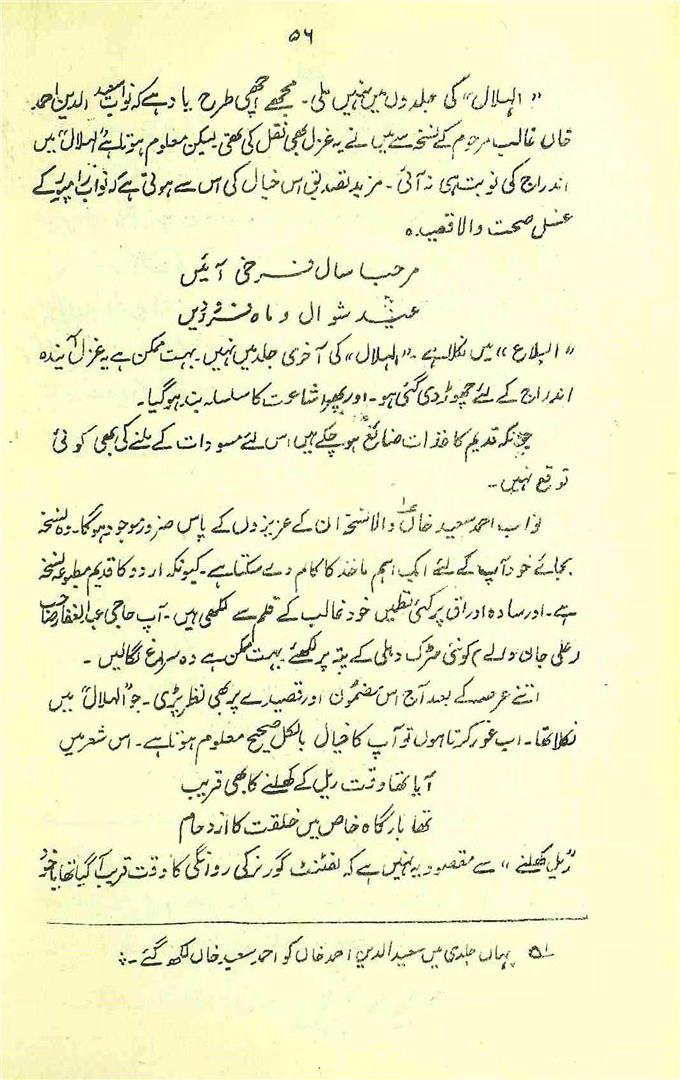 ۵۶
"الہلال" کی جلدوں میں نہیں ملی۔ مجھے اچھی طرح یاد ہے کہ نواب سعید الدین احمد
خاں غالب مرحوم کے نسخہ سے میں نے یہ غزل بھی نقل کی تھی۔ لیکن معلوم ہوتا ہے "الہلال" میں
اندراج کی نوبت ہی نہ آئی۔ مزید تصدیق اس خیال کی اس سے ہوتی ہے کہ نواب رامپور کے
غسل صحت والا قصیدہ
مرحبا سال فرخی آئیں
عید شوال و ماہ فروردیں
"البلاغ" میں نکلا ہے۔ "الہلال" کی آخری جلد میں نہیں۔ بہت ممکن ہے یہ غزل آیندہ
اندراج کے لئے چھوڑ دی گئی ہو۔ اور پھر اشاعت کا سلسلہ بند ہو گیا۔
چونکہ قدیم کاغذات ضائع ہو چکے ہیں اس لئے مسودات کے ملنے کی بھی کوئی
توقع نہیں۔
نواب احمد سعید خاں والا نسخہ ان کے عزیزوں کے پاس ضرور موجود ہوگا۔ وہ نسخہ
بجائے خود آپ کے لئے ایک اہم ماخذ کا کام دے سکتا ہے۔ کیونکہ اردو کا قدیم مطبوعہ نسخہ
ہے۔ اور سادہ اوراق پر کئی نظمیں خود غالب کے قلم سے لکھی ہیں۔ آپ حاجی عبدالغفار صاحب
(علی جان والے) کوئنی سڑک دہلی کے پتہ پر لکھئے بہت ممکن ہے وہ سراغ لگالیں۔
اتنے عرصہ کے بعد آج اس مضمون اور قصیدے پر بھی نظر پڑی۔ جو "الہلال" میں
نکلا تھا۔ اب غور کرتا ہوں تو آپ کا خیال بالکل صحیح معلوم ہوتا ہے۔ اس شعر میں
آیا تھا وقت ریل کے کھلنے کا بھی قریب
تھا بارگاہ خاص میں خلقت کا ازدحام
"ریل کھلنے" سے مقصود یہ نہیں ہے کہ لفٹنٹ گورنر کی روانگی کا وقت قریب آگیا تھا یا خود
۱ یہاں جلدی میں سعید الدین احمد خاں کو احمد سعید خاں لکھ گئے۔